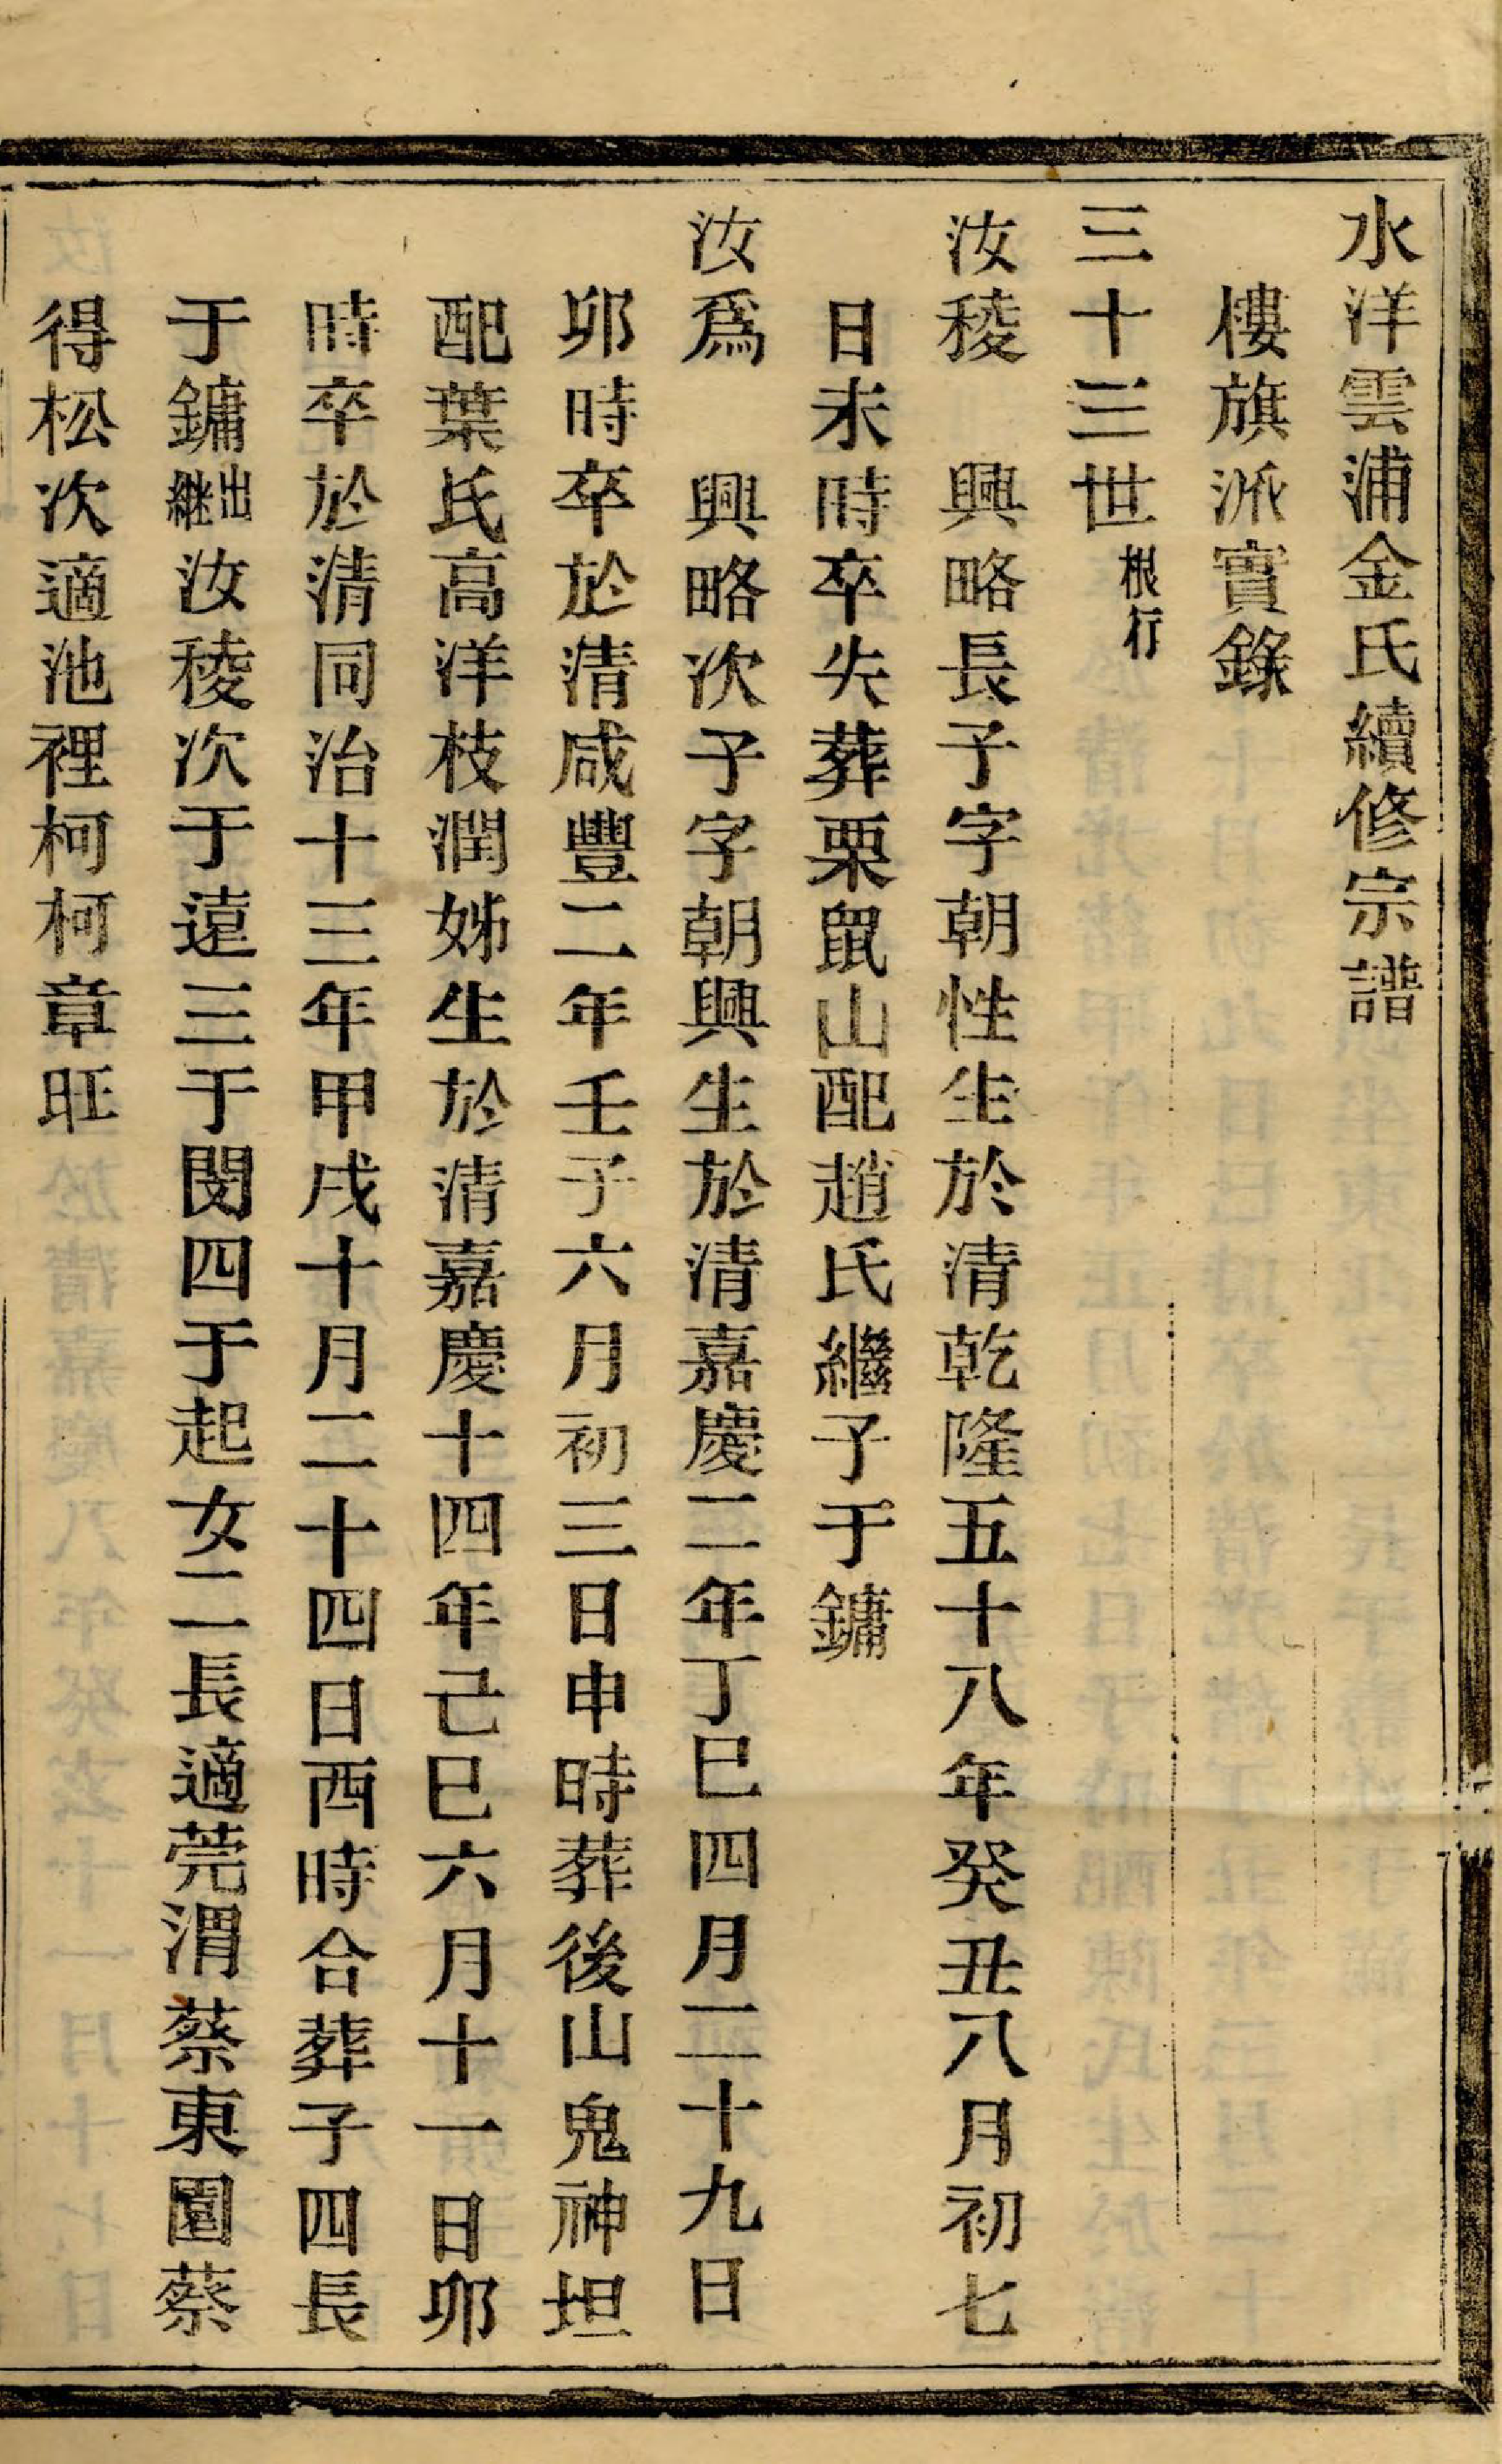 水洋雲浦金氏續修宗譜
樓旗派實錄
三十三世根行
汝稜 興略長子字朝性生於清乾隆五十八年癸丑八月初七
日未時卒失葬栗鼠山配趙氏繼子于鏞
汝爲 興略次子字朝興生於清嘉慶二年丁巳四月二十九日
卯時卒於清咸豐二年壬子六月初三日申時葬後山鬼神坦
配葉氏高洋枝潤姊生於清嘉慶十四年己巳六月十一日卯
時卒於清同治十三年甲戌十月二十四日酉時合葬子四長
于鏞出繼汝稜次于遠三于閔四于起女二長適莞渭蔡東園蔡
得松次適池裡柯柯章旺